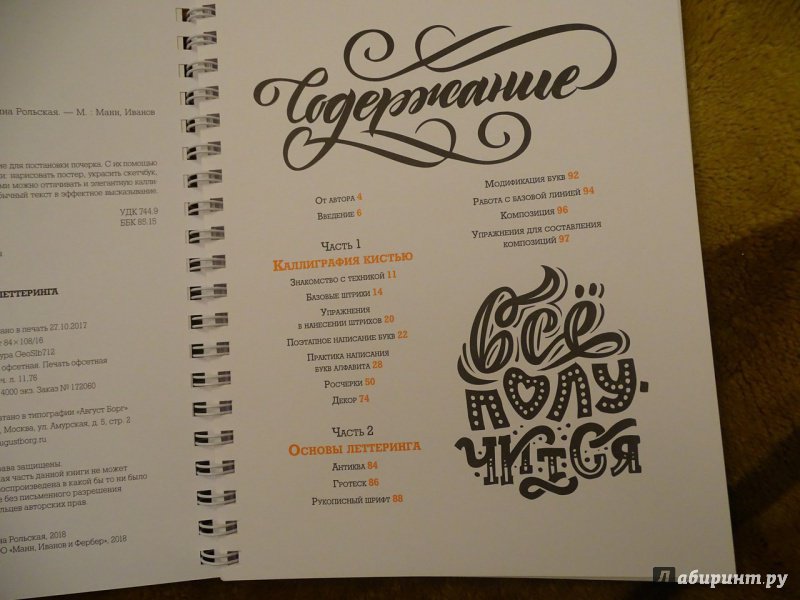 на Рольская. — М. : Манн, Иванов
ие для постановки почерка. С их помощью
и: нарисовать постер, украсить скетчбук,
ми можно оттачивать и элегантную калли-
бычный текст в эффектное высказывание.
УДК 744.9
ББК 85.15
ЛЕТТЕРИНГА
ано в печать 27.10.2017
т 84×108/16
ура GeoSlb712
офсетная. Печать офсетная
ч. л. 11,76
4000 экз. Заказ № 172060
атано в типографии «Август Борг»
Москва, ул. Амурская, д. 5, стр. 2
ugustborg.ru
ава защищены.
кая часть данной книги не может
воспроизведена в какой бы то ни было
е без письменного разрешения
льцев авторских прав.
на Рольская, 2018
ОО «Манн, Иванов и Фербер», 2018
Содержание
От автора 4
Введение 6
Часть 1
Каллиграфия кистью
Знакомство с техникой 11
Базовые штрихи 14
Упражнения
в нанесении штрихов 20
Поэтапное написание букв 22
Практика написания
букв алфавита 28
Росчерки 50
Декор 74
Часть 2
Основы леттеринга
Антиква 84
Гротеск 86
Рукописный шрифт 88
Модификация букв 92
Работа с базовой линией 94
Композиция 96
Упражнения для составления
композиций 97
Всё
полу-
чится
Лабиринт.ру